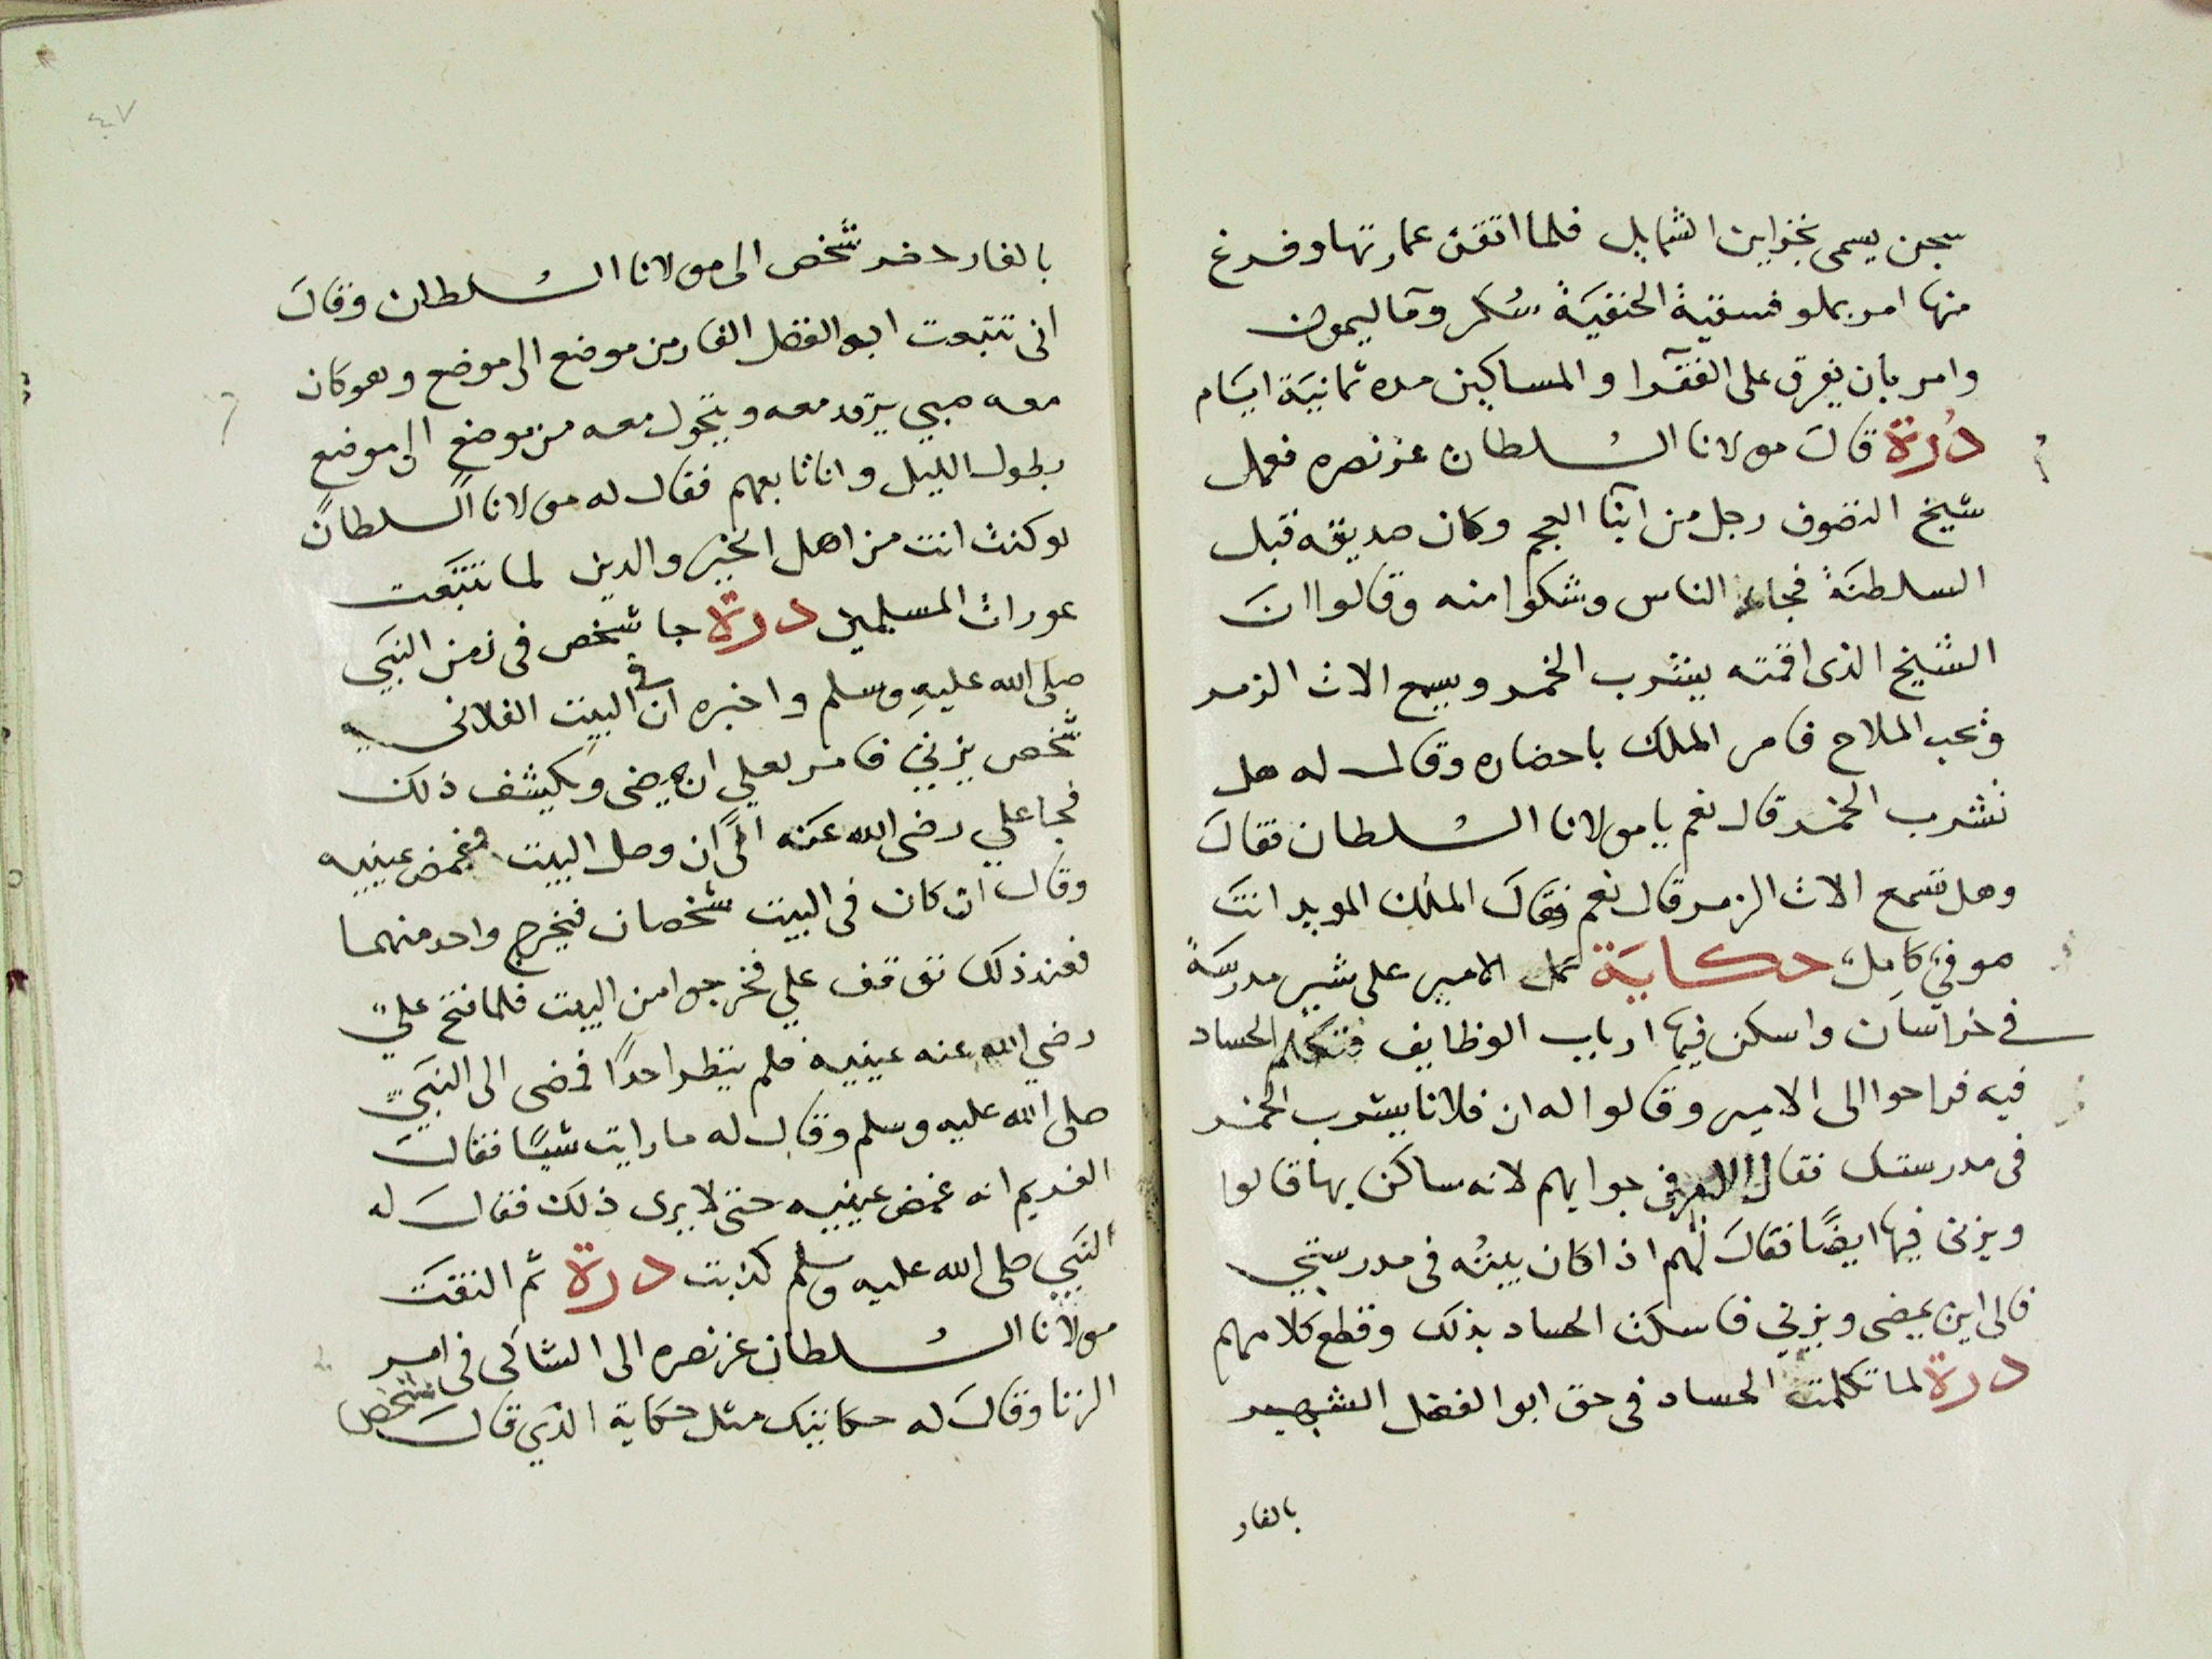 سجن يسمى بخزاين الشمايل فلما اتقن عمارتها وفرغ
منها امر بملو فسقية الحنفية سكر وما ليمون
وامر بان يفرق على الفقرا والمساكين مده ثمانية ايام
درة قال مولانا السلطان عز نصره فعمل
شيخ التصوف رجل من ابنا العجم وكان صديقه قبل
السلطنة فجاء الناس وشكوا منه وقالوا ان
الشيخ الذى اقمته يشرب الخمر ويسمع الات الزمر
ويحب الملاح فامر الملك باحضاره وقال له هل
تشرب الخمر قال نعم يا مولانا السلطان فقال
وهل تسمع الات الزمر قال نعم فقال الملك المويد انت
صوفي كامل حكاية عمل الامير على شير مدرسة
فى خراسان واسكن فيها ارباب الوظايف فتكلم الحساد
فيه فراحوا الى الامير وقالوا له ان فلانا يشرب الخمر
فى مدرستك فقال الامير فى جوابهم لانه ساكن بها قالوا
ويزنى فيها ايضا فقال لهم اذا كان بيته فى مدرستي
فالى اين يمضى ويزني فاسكت الحساد بذلك وقطع كلامهم
درة لما تكلمت الحساد فى حق ابو الفضل الشهير
بالفار
٤٧
بالفار حضر شخص الى مولانا السلطان وقال
انى تتبعت ابو الفضل الفار من موضع الى موضع وهو كان
معه صبي يرقد معه ويتحول معه من موضع الى موضع
بطول الليل وانا تابعهم فقال له مولانا السلطان
لو كنت انت من اهل الخير والدين لما تتبعت
عورات المسلمين درة جا شخص فى زمن النبي
صلى الله عليه وسلم واخبره ان فى البيت الفلانى
شخص يزني فامر لعلي ان يمضى ويكشف ذلك
فجا علي رضى الله عنه الى ان وصل البيت فغمض عينيه
وقال ان كان فى البيت شخصان فيخرج واحد منهما
فعند ذلك توقف علي فخرجوا من البيت فلما فتح علي
رضي الله عنه عينيه فلم ينظر احدا فمضى الى النبي
صلى الله عليه وسلم وقال له ما رايت شيا فقال
الغريم انه غمض عينيه حتى لا يرى ذلك فقال له
النبي صلى الله عليه وسلم كذبت درة ثم التفت
مولانا السلطان عز نصره الى الشاكى فى امر
الزنا وقال له حكايتك مثل حكاية الذي قال شخص